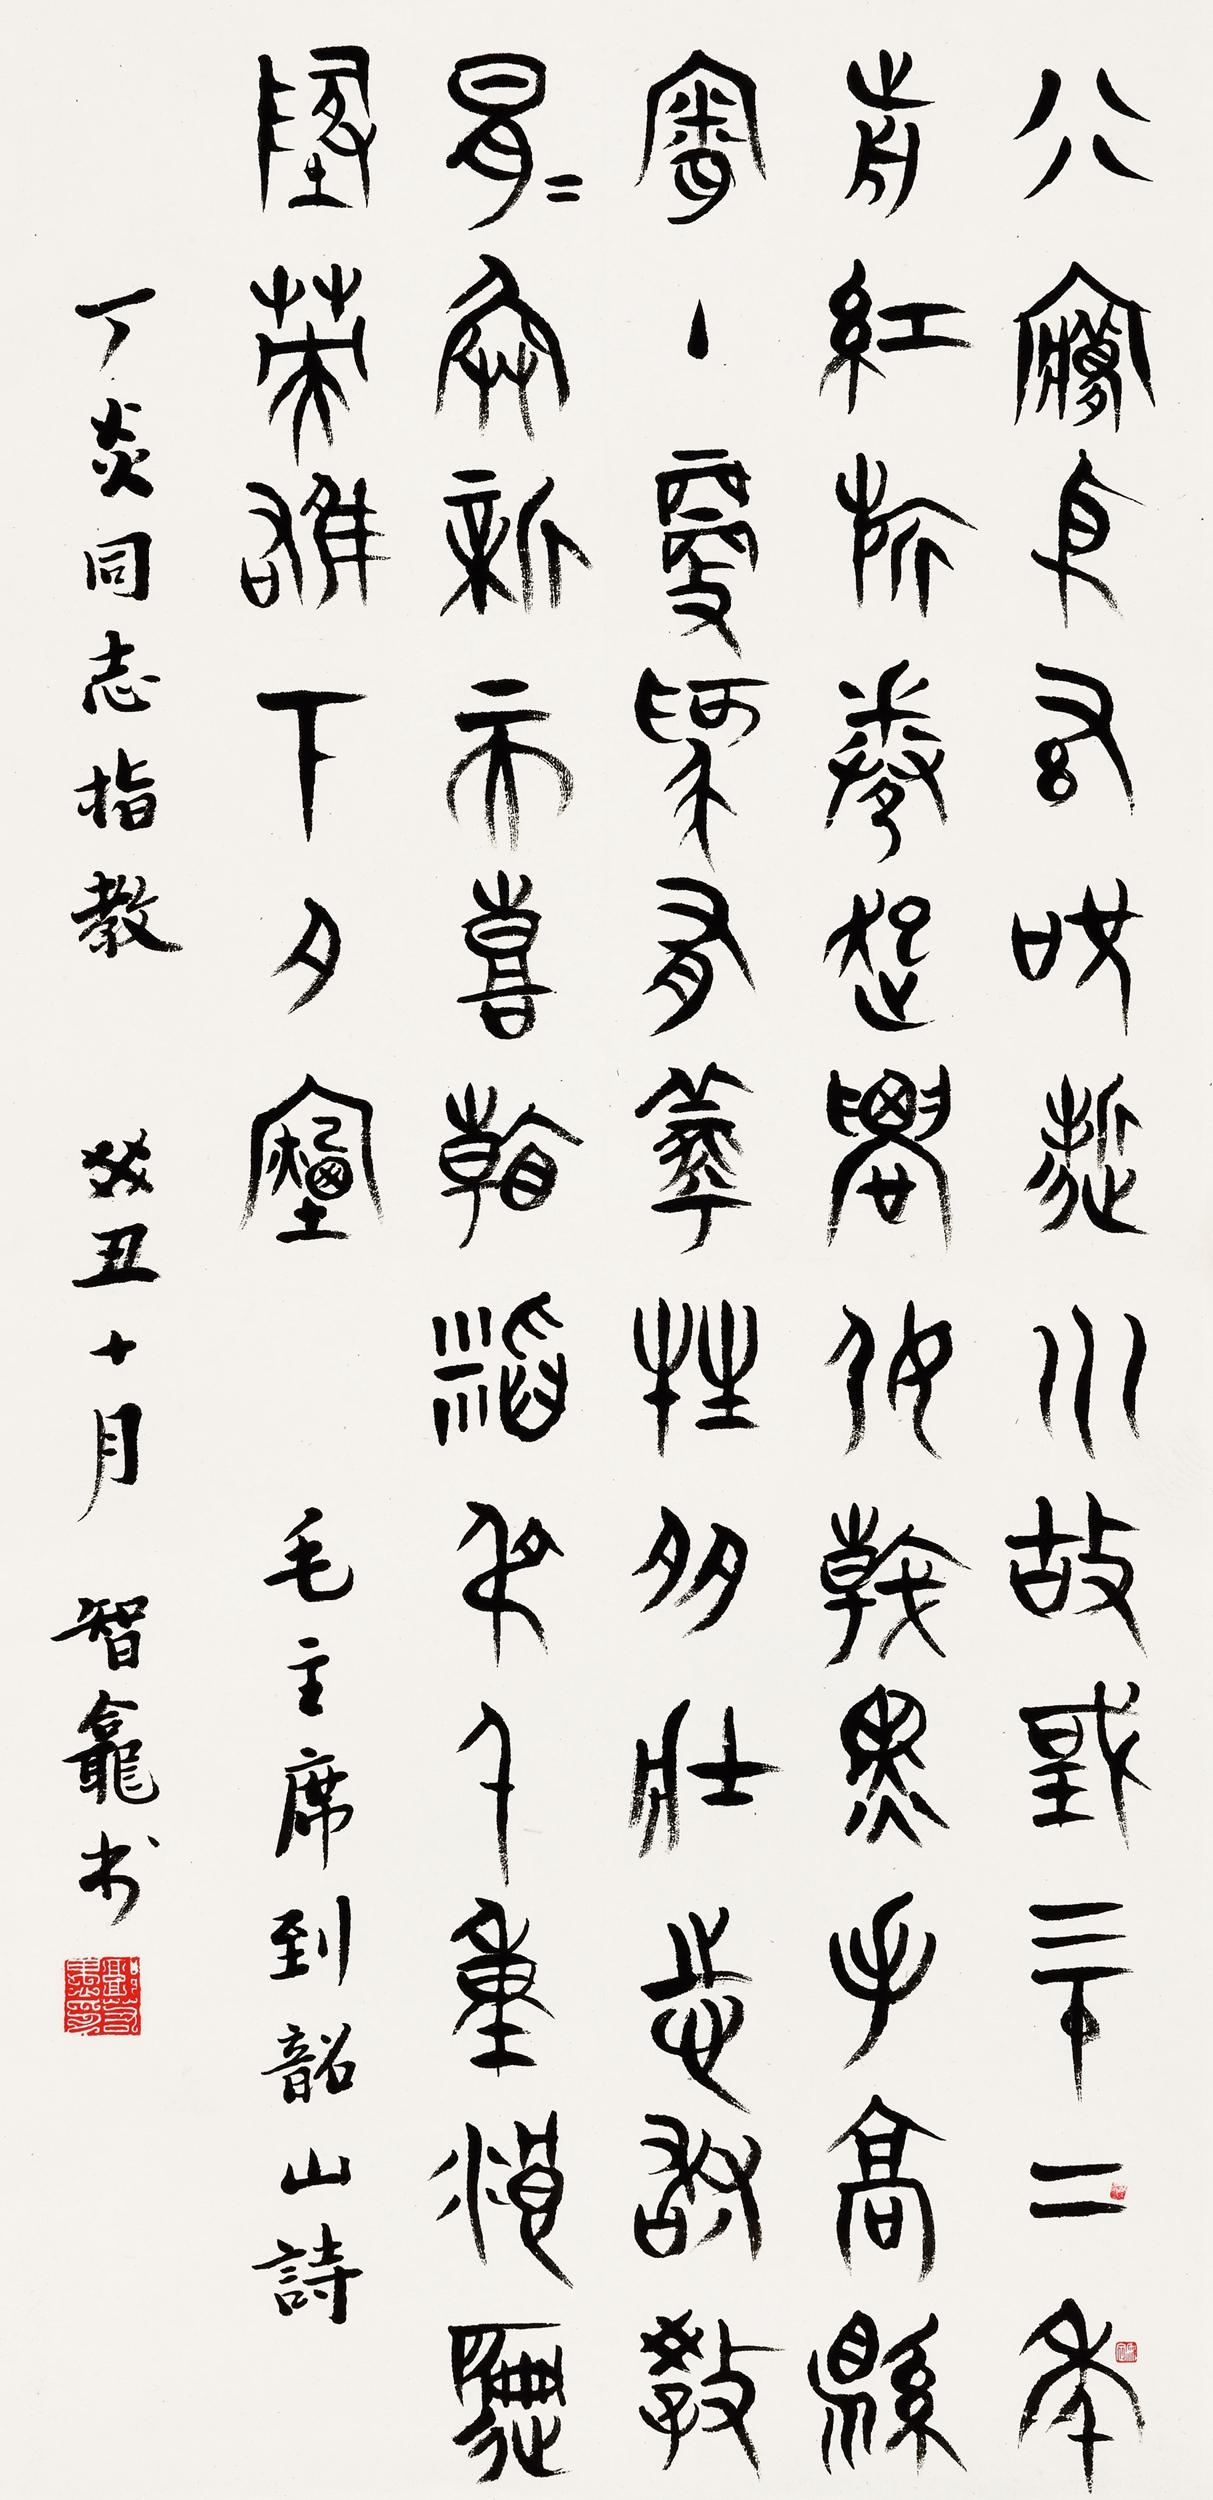 別夢依稀咒逝川故國三十二年
前紅旂卷起農奴戟黑手高縣
霸主鞭為有犧牲多壯志敢教
日月換新天喜看稻菽千重浪遍
地英雄下夕煙 毛主席到韶山詩
丁炎同志指教 癸丑十月 智龕书